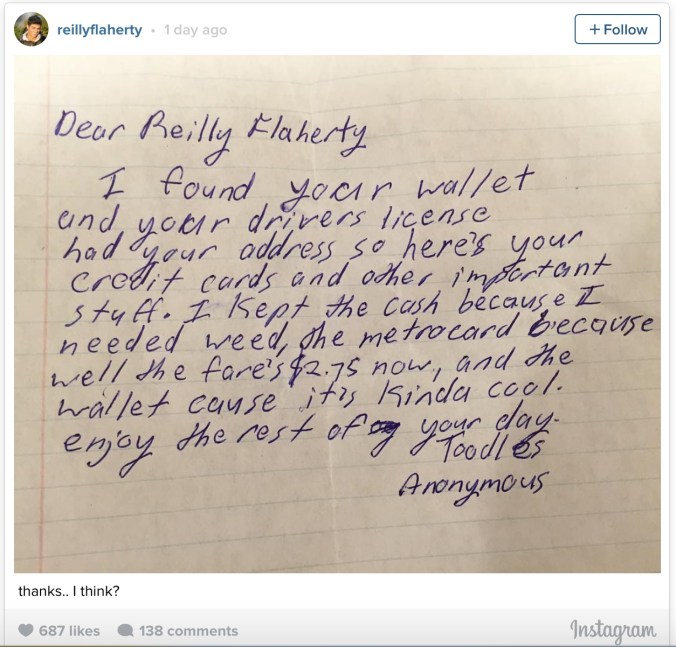 reillyflaherty • 1 day ago
+ Follow
Dear Reilly Flaherty
I found your wallet
and your drivers license
had your address so here's your
credit cards and other important
stuff. I kept the cash because I
needed weed, the metrocard because
well the fare's $2.75 now, and the
wallet cause it's kinda cool.
enjoy the rest of your day.
Toodles
Anonymous
thanks.. I think?
687 likes 138 comments
Instagram